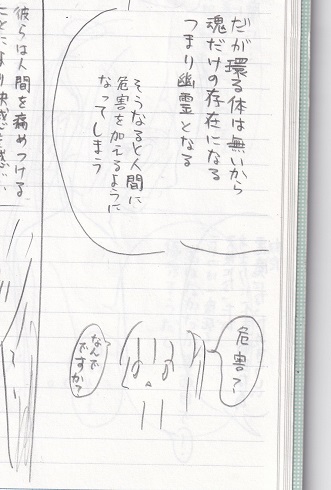 だが環る体は無いから
魂だけの存在になる
つまり幽霊となる
そうなると人間に
危害を加えるように
なってしまう
危害？
なんで
ですか？
彼らは人間を痛めつける